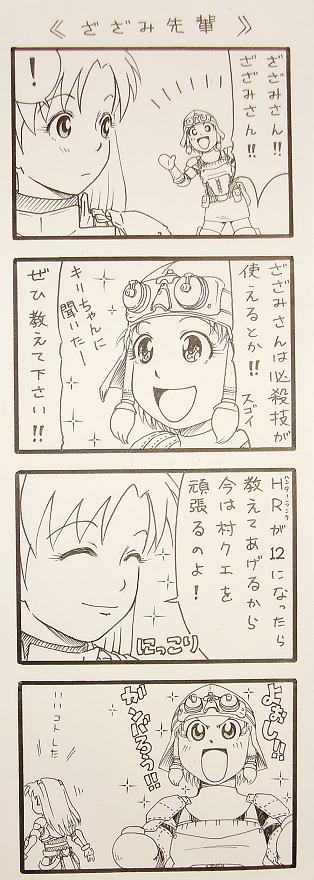 《ざざみ先輩》
ざざみさん!!
ざざみさん!!
!
ざざみさんは必殺技が
使えるとか!!
スゴイ
キリちゃんに
聞いたー
ぜひ教えて下さい!!
HRが12になったら
ハンターランク
教えてあげるから
今は村クエを
頑張るのよ!
にっこり
よぉし!!
ガンバるぅ!!
いいコトした